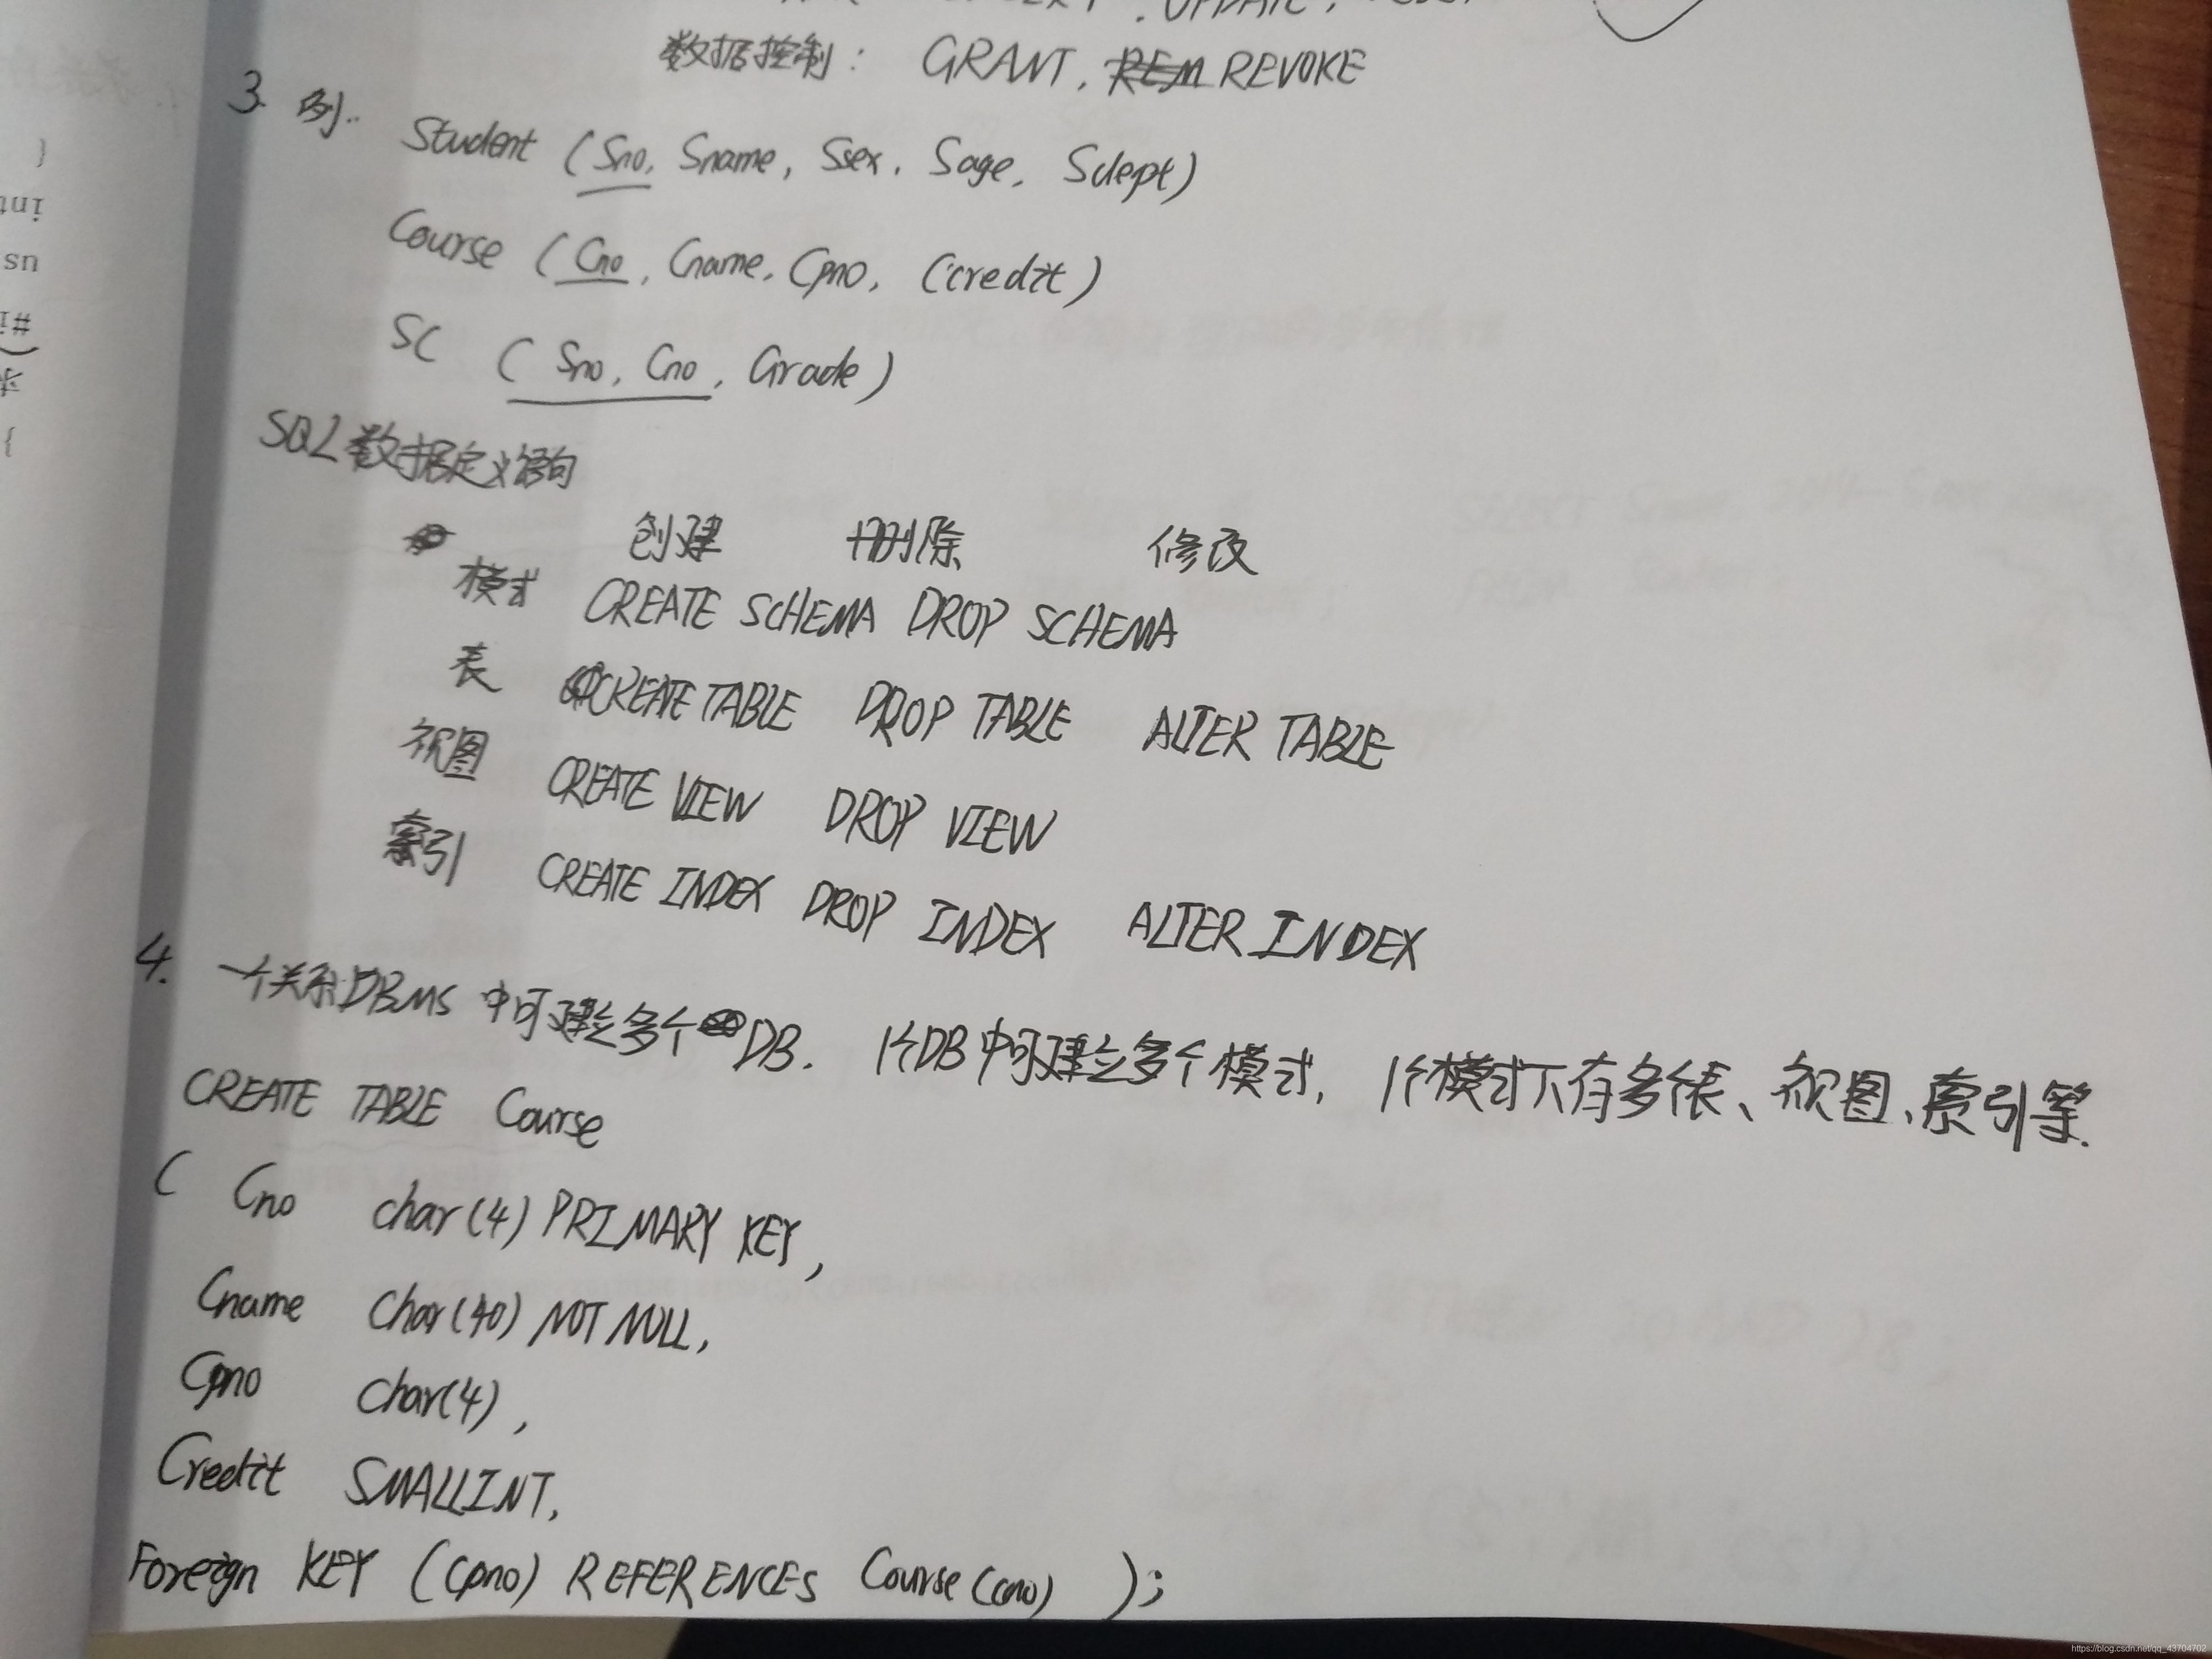 UPDATE,
数据控制： GRANT, REVOKE
3. 例.
Student (Sno, Sname, Ssex, Sage, Sdept)
Course (Cno, Cname, Cpno, Ccredit)
SC (Sno, Cno, Grade)
SQL数据定义语句
创建 删除 修改
模式 CREATE SCHEMA DROP SCHEMA
表 CREATE TABLE DROP TABLE ALTER TABLE
视图 CREATE VIEW DROP VIEW
索引 CREATE INDEX DROP INDEX ALTER INDEX
4. 一个关系DBMS中可建立多个DB. 1个DB中可建立多个模式, 1个模式下有多个表、视图、索引等.
CREATE TABLE Course
( Cno char(4) PRIMARY KEY,
Cname Char(40) NOT NULL,
Cpno Char(4),
Credit SMALLINT,
Foreign KEY (Cpno) REFERENCES Course(cno) );
int
us
#i
https://blog.csdn.net/qq_43704702